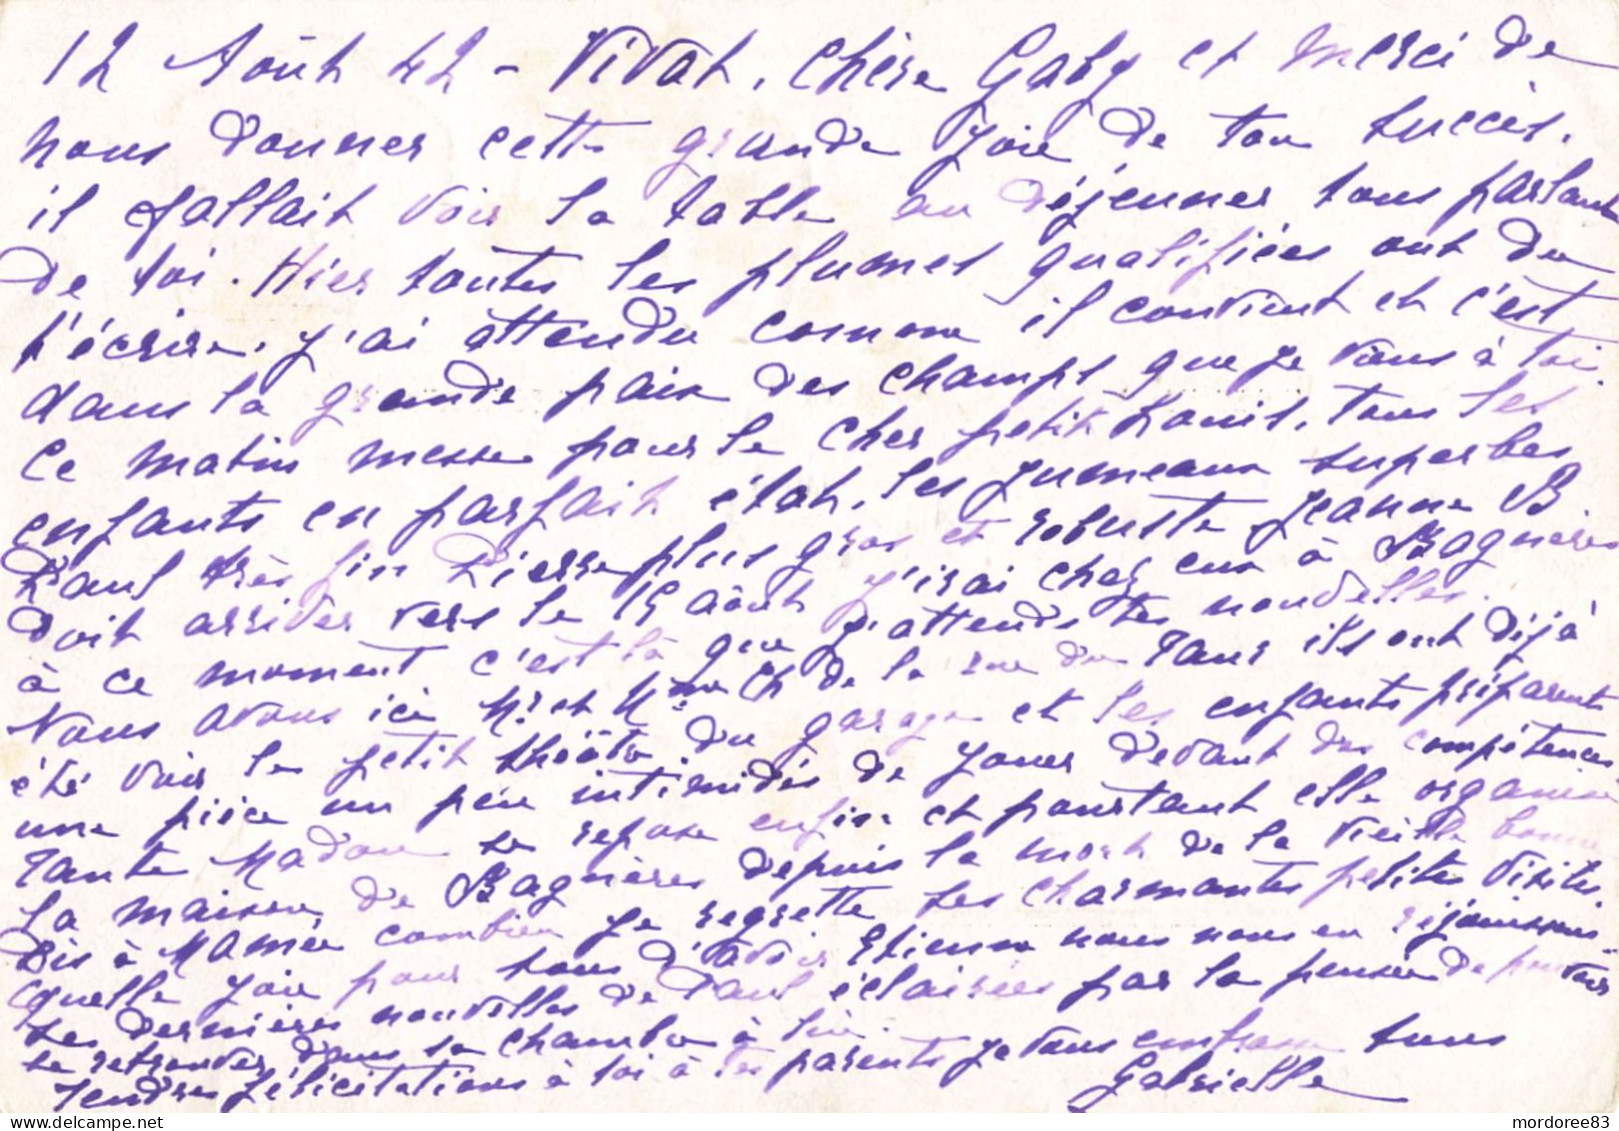 12 Août 42 - Vivat, chère Gaby et merci de
nous donner cette grande joie de ton succès.
il fallait voir la table au déjeuner tous parlant
de toi. Hier toutes les plumes qualifiées ont du
t'écrire. J'ai attendu comme il convient et c'est
dans la grande paix des champs que je viens à toi.
Ce matin messe pour le cher petit Louis. Tous les
enfants en parfait état, les jumeaux superbes
Paul très fin Pierre plus gros et robuste Jeanne B
doit arriver vers le 15 août j'irai chez eux à Bagnères
à ce moment c'est là que j'attends tes nouvelles.
Nous avons ici Mr et Mme Ch de la rue du ils ont déjà
été voir le petit théâtre du garage et les enfants préparent
une pièce un peu intimidés de jouer devant des compétences
Tante Madon se repose enfin et pourtant elle organise
la maison de Bagnères depuis la mort de la vieille bonne
Dis à Mamée combien je regrette ses charmantes petites visites
quelle joie pour tous d'avoir Etienne nous nous en réjouissons -
les dernières nouvelles de Paul éclairées par la pensée de pouvoir
se retrouver dans sa chambre à
Tendres félicitations à toi à tes parents je vous embrasse tous
Gabrielle
mordoree83